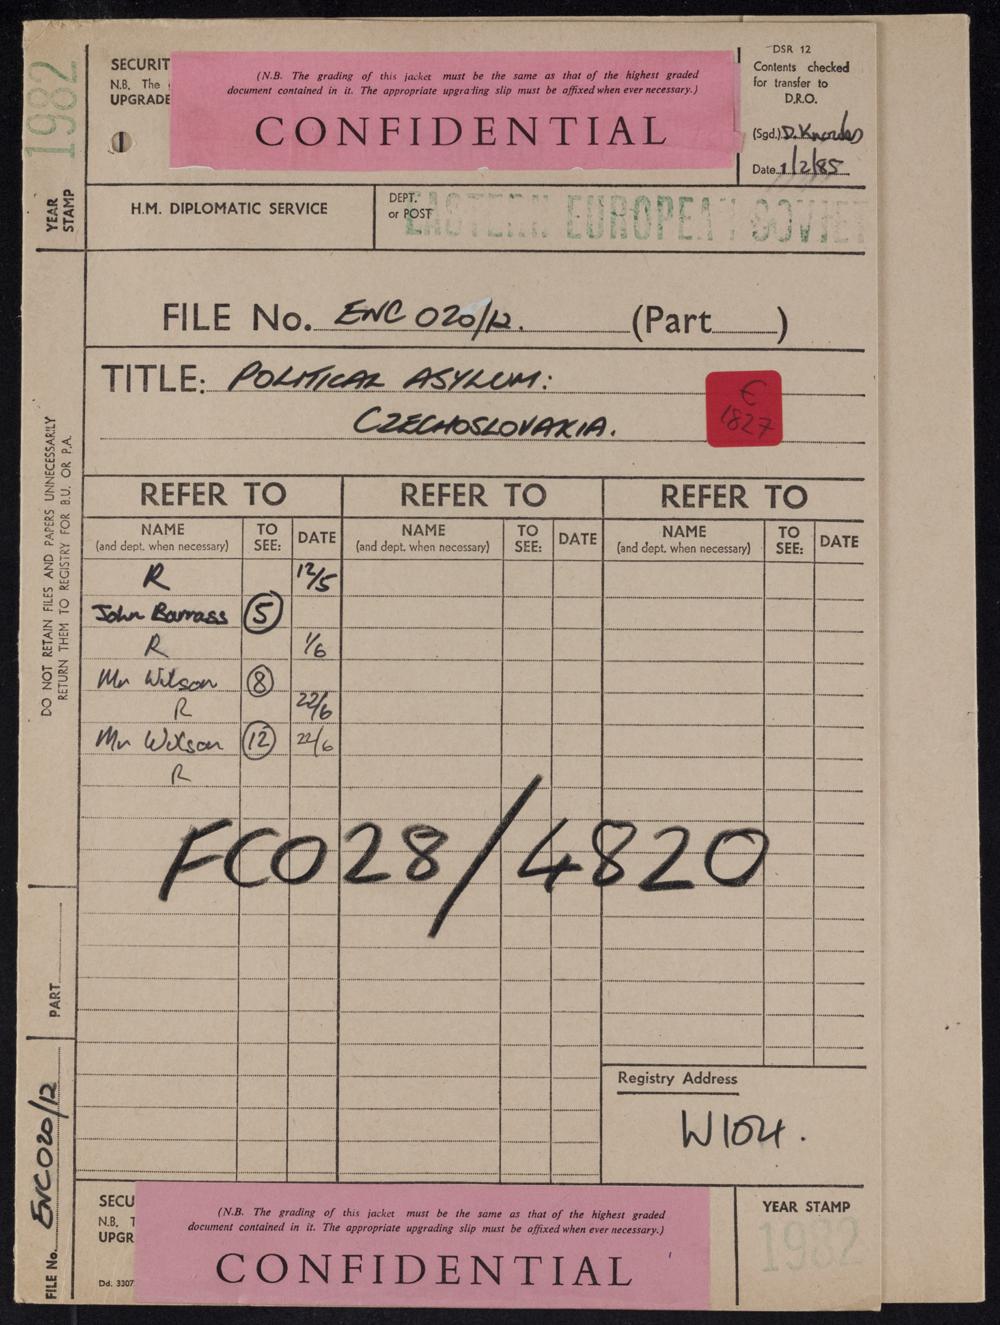 1982
YEAR STAMP
SECURIT
N.B. The
UPGRADE
(N.B. The grading of this jacket must be the same as that of the highest graded
document contained in it. The appropriate upgrading slip must be affixed when ever necessary.)
CONFIDENTIAL
DSR 12
Contents checked
for transfer to
D.R.O.
(Sgd.) D. Knowles
Date 1/2/85
H.M. DIPLOMATIC SERVICE
DEPT.
or POST
EASTERN EUROPEAN SOVIET
FILE No. ENC 020/12. (Part )
TITLE: POLITICAL ASYLUM:
CZECHOSLOVAKIA.
E
1827
DO NOT RETAIN FILES AND PAPERS UNNECESSARILY
RETURN THEM TO REGISTRY FOR B.U. OR P.A.
REFER TO REFER TO REFER TO
NAME TO SEE: DATE NAME TO SEE: DATE NAME TO SEE: DATE
(and dept. when necessary) (and dept. when necessary) (and dept. when necessary)
R 12/5
John Barrass 5
R 1/6
Mr Wilson 8
R 22/6
Mr Wilson 12 22/6
R
FCO 28/4820
PART
Registry Address
W104.
FILE No. ENC020/12
SECU
N.B. T
UPGR
Dd. 3307
(N.B. The grading of this jacket must be the same as that of the highest graded
document contained in it. The appropriate upgrading slip must be affixed when ever necessary.)
CONFIDENTIAL
YEAR STAMP
1982